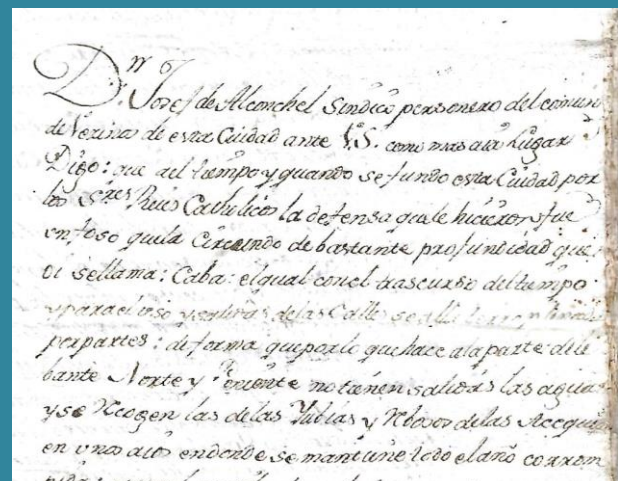 Dn. Josef de Alconchel Sindico personero del comun
de Vezinos de esta Ciudad ante V.S. como mas aia Lugar
Digo: que al tiempo y quando se fundo esta Ciudad por
los Sres. Reies Catholicos la defensa que le hicieron fue
un foso que la Circundo de bastante profundidad que
oi se llama: Caba: el qual con el trascurso del tiempo
y para el uso y salidas de las Calles se alla
por partes: de forma que por lo que hace a la parte de le
bante Norte y Poniente no tienen salidas las aguas
y se Recogen las de las llubias y Rebosos de las Acequias
en unos donde se mantiene todo el año corrom